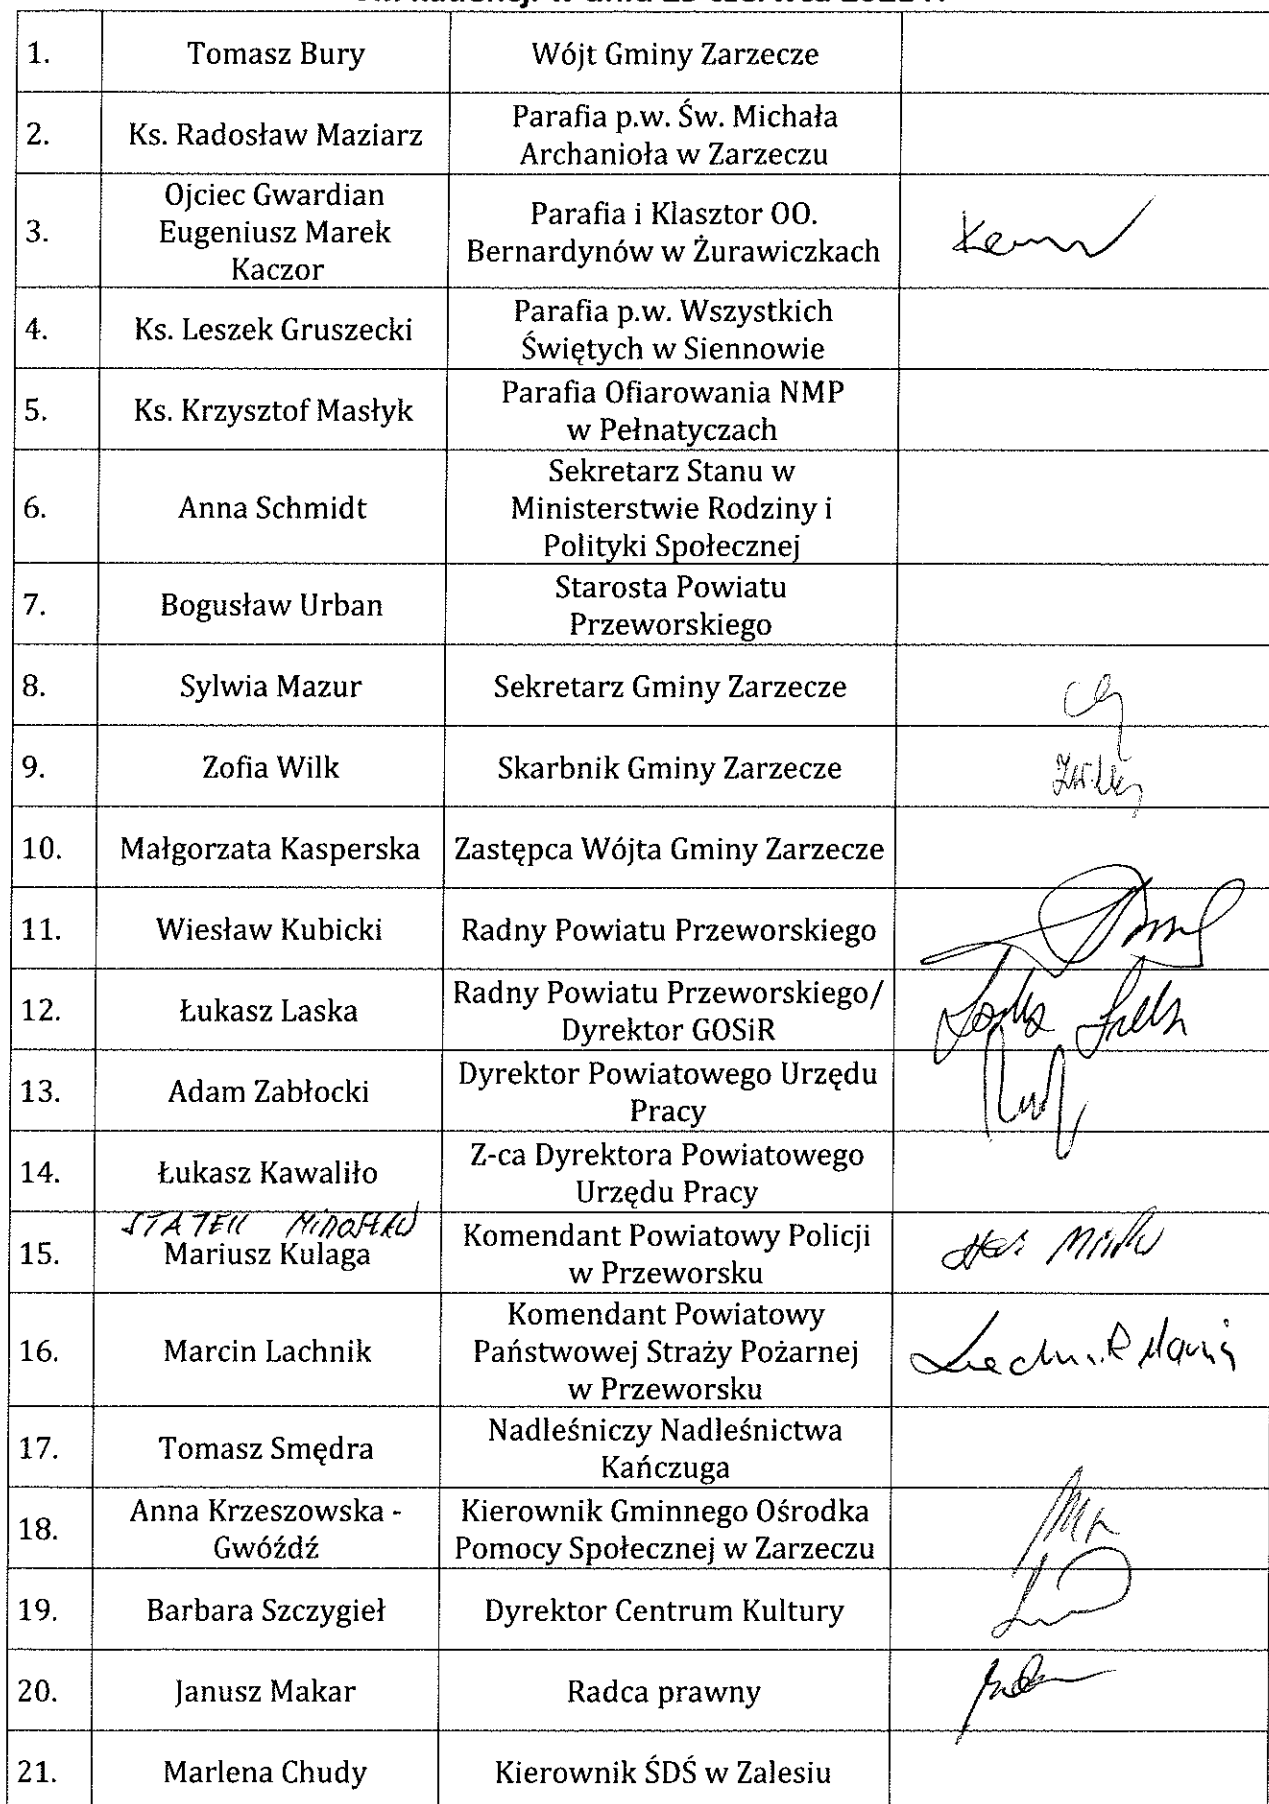 1. Tomasz Bury Wójt Gminy Zarzecze
2. Ks. Radosław Maziarz Parafia p.w. Św. Michała
Archanioła w Zarzeczu
3. Ojciec Gwardian
Eugeniusz Marek
Kaczor
Parafia i Klasztor OO.
Bernardynów w Żurawiczkach
4. Ks. Leszek Gruszecki Parafia p.w. Wszystkich
Świętych w Siennowie
5. Ks. Krzysztof Masłyk Parafia Ofiarowania NMP
w Pełnatyczach
6. Anna Schmidt Sekretarz Stanu w
Ministerstwie Rodziny i
Polityki Społecznej
7. Bogusław Urban Starosta Powiatu
Przeworskiego
8. Sylwia Mazur Sekretarz Gminy Zarzecze
9. Zofia Wilk Skarbnik Gminy Zarzecze
10. Małgorzata Kasperska Zastępca Wójta Gminy Zarzecze
11. Wiesław Kubicki Radny Powiatu Przeworskiego
12. Łukasz Laska Radny Powiatu Przeworskiego/
Dyrektor GOSiR
13. Adam Zabłocki Dyrektor Powiatowego Urzędu
Pracy
14. Łukasz Kawaliło Z-ca Dyrektora Powiatowego
Urzędu Pracy
15. Mariusz Kulaga Komendant Powiatowy Policji
w Przeworsku
16. Marcin Lachnik Komendant Powiatowy
Państwowej Straży Pożarnej
w Przeworsku
17. Tomasz Smędra Nadleśniczy Nadleśnictwa
Kańczuga
18. Anna Krzeszowska -
Gwóźdź
Kierownik Gminnego Ośrodka
Pomocy Społecznej w Zarzeczu
19. Barbara Szczygieł Dyrektor Centrum Kultury
20. Janusz Makar Radca prawny
21. Marlena Chudy Kierownik ŚDŚ w Zalesiu